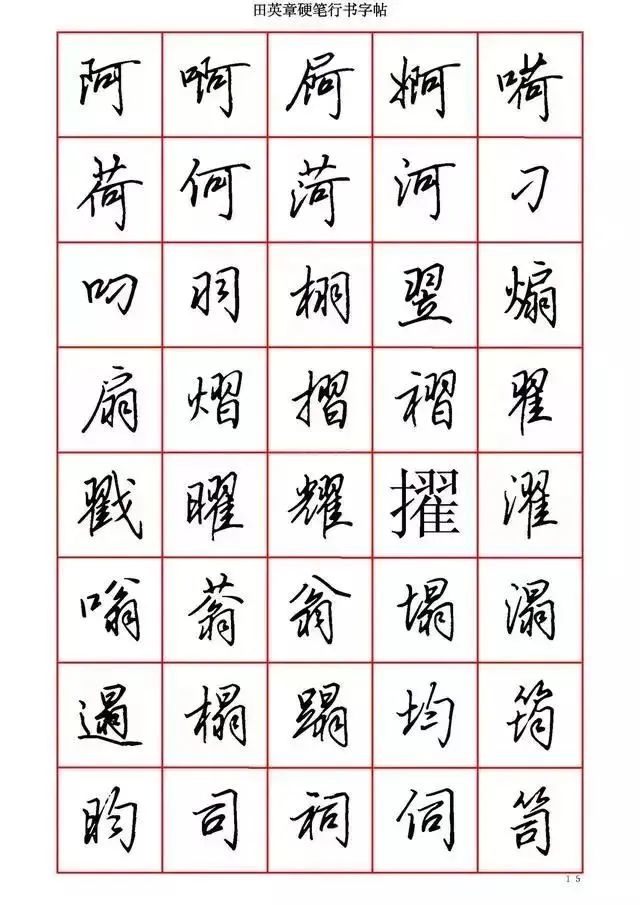 田英章硬笔行书字帖
阿 啊 屙 婀 嗬
荷 何 菏 河 刁
叨 羽 栩 翌 煽
扇 熠 摺 褶 翟
戳 曜 耀 擢 濯
嗡 蓊 翁 塌 溻
遢 榻 蹋 均 筠
昀 司 祠 伺 笥
15